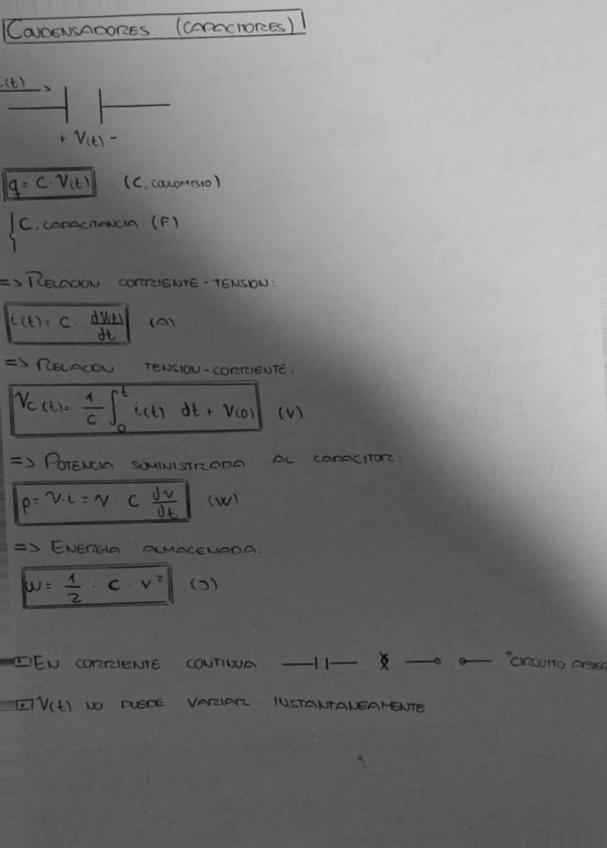 CONDENSADORES (CAPACITORES)
i(t)
+ V(t) -
q = C · V(t) (C, COLOMBIO)
C, CAPACITANCIA (F)
=> RELACION CORRIENTE-TENSION:
i(t) = C · dV(t)/dt (A)
=> RELACION TENSION-CORRIENTE:
Vc(t) = 1/C ∫₀ᵗ i(t) dt + V(0) (V)
=> POTENCIA SUMINISTRADA AL CAPACITOR:
p = v·i = v · C dv/dt (W)
=> ENERGIA ALMACENADA:
W = 1/2 · C · v² (J)
EN CORRIENTE CONTINUA "CIRCUITO
V(t) NO PUEDE VARIAR INSTANTANEAMENTE